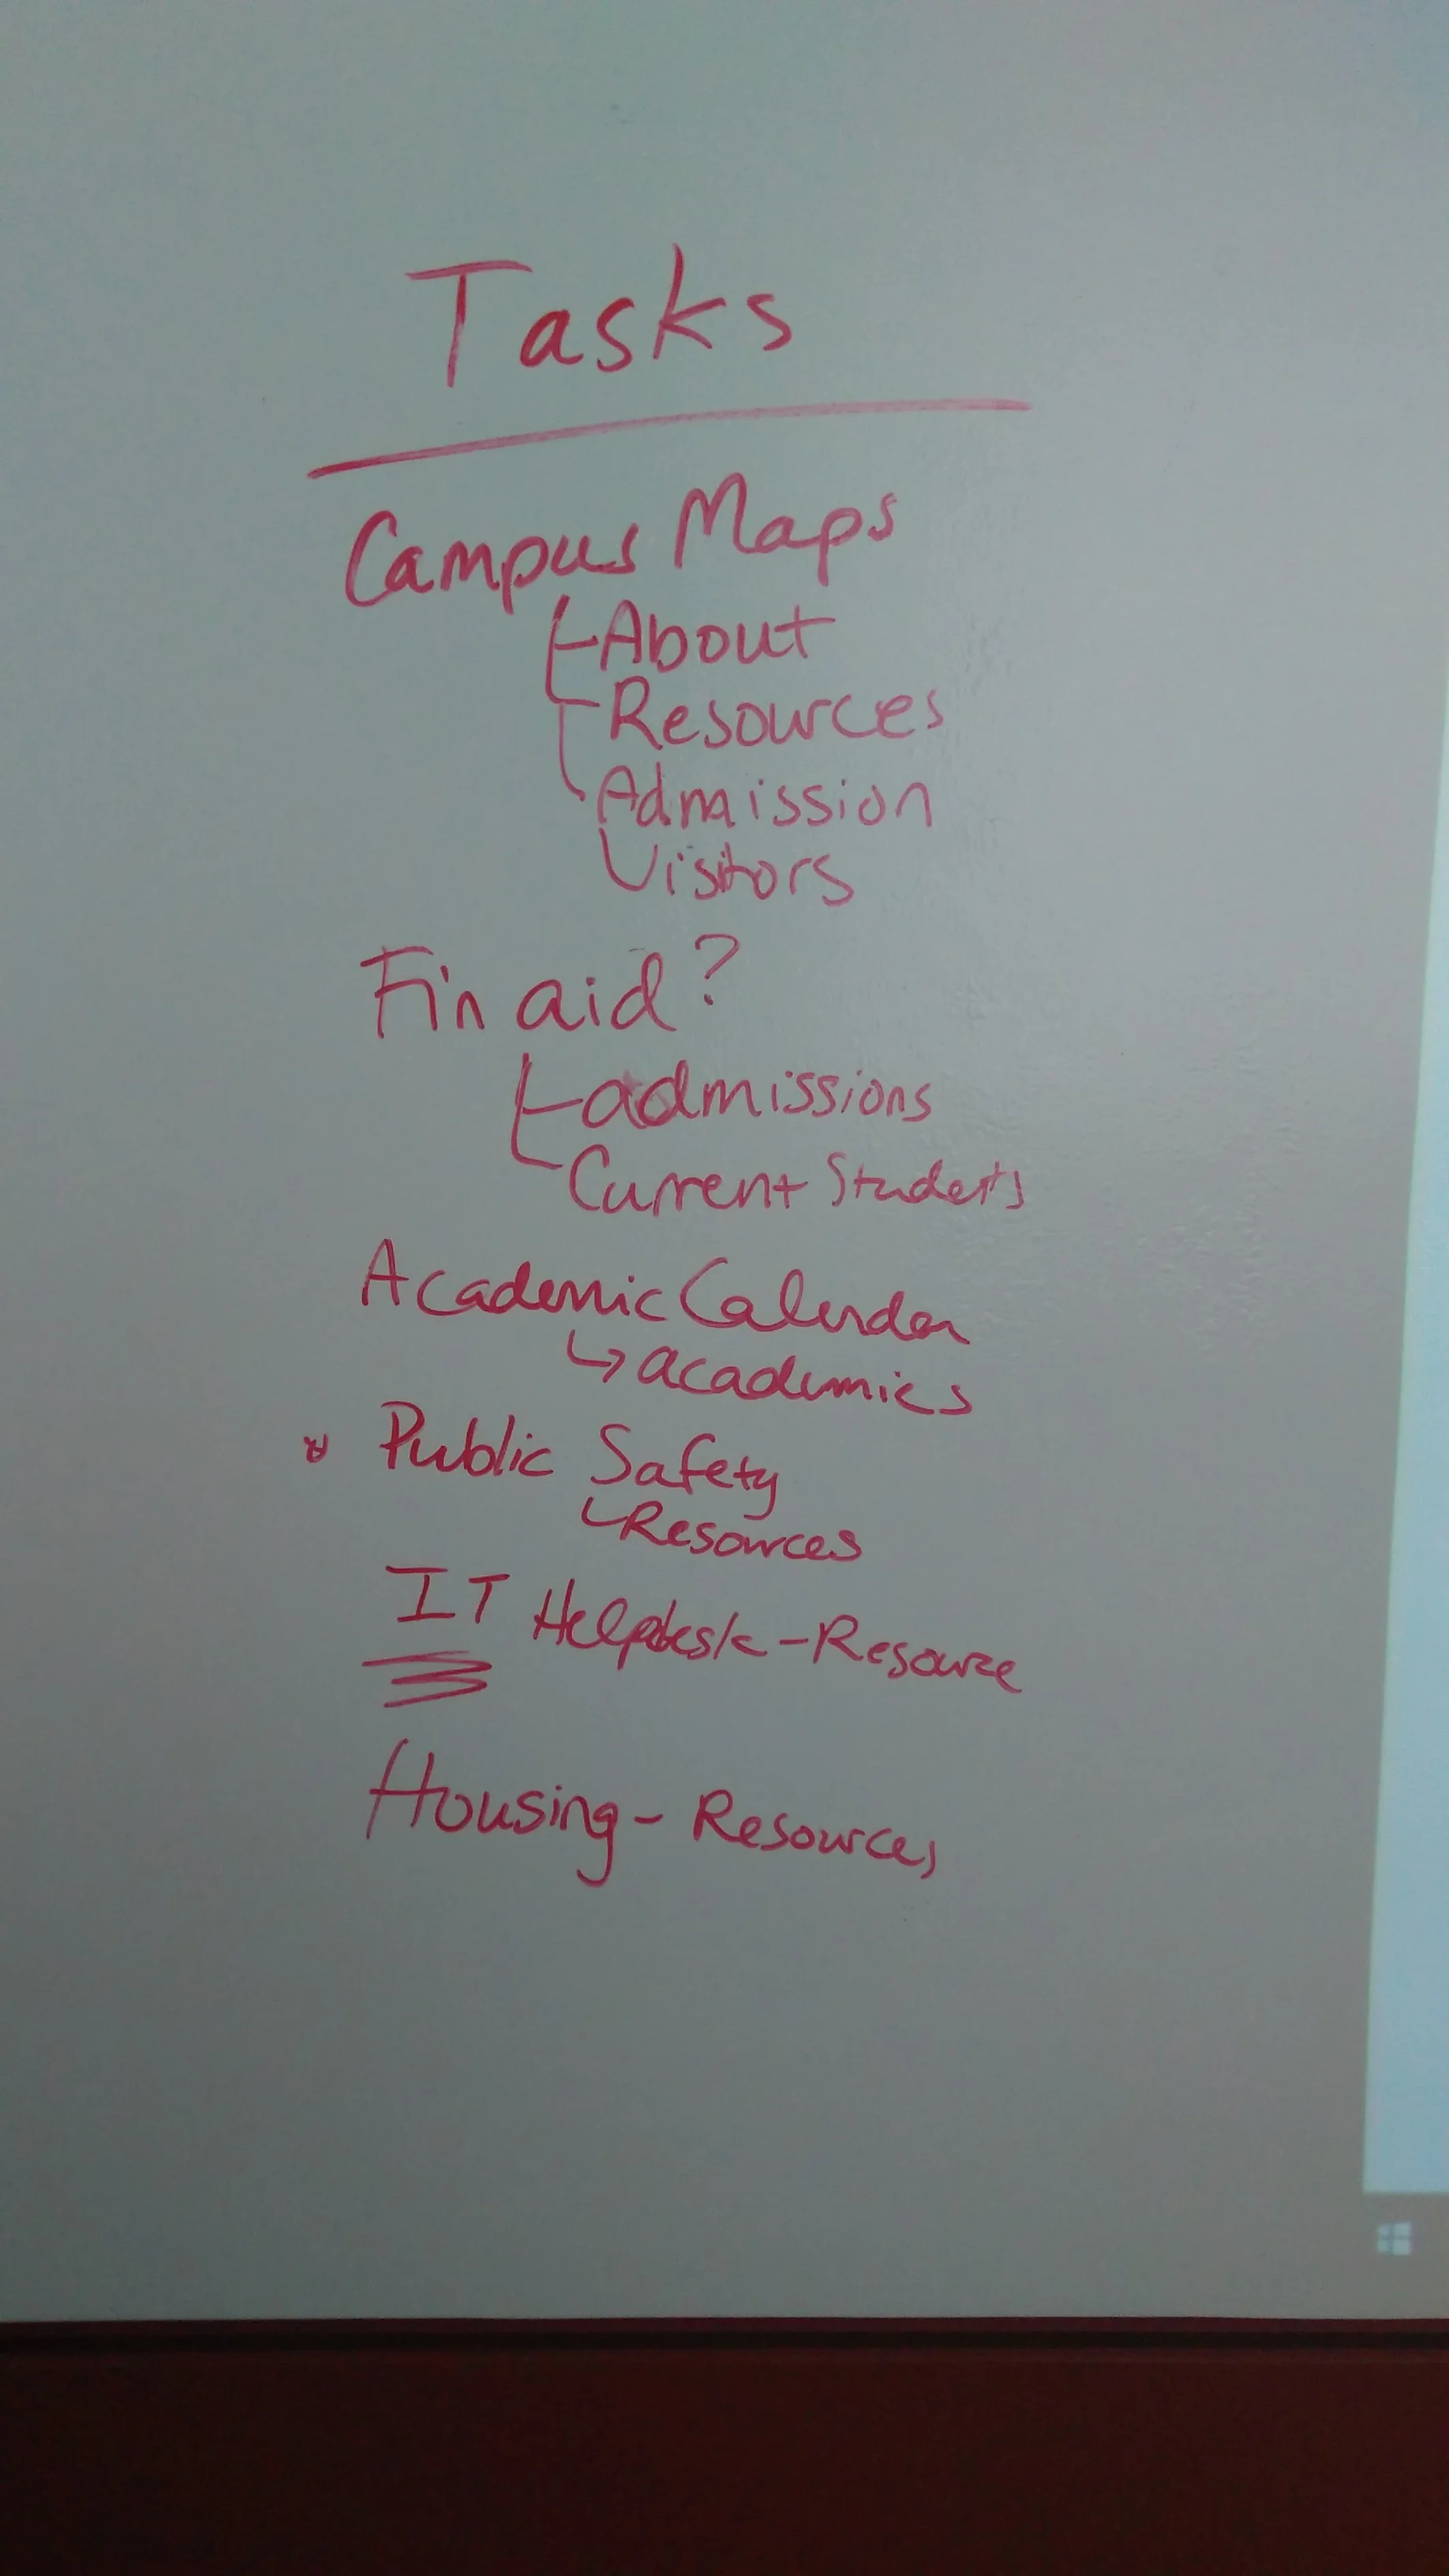 Tasks
Campus Maps
About
Resources
Admission
Visitors
Fin aid?
admissions
Current Students
Academic Calendar
academics
* Public Safety
Resources
IT Helpdesk - Resource
Housing - Resources